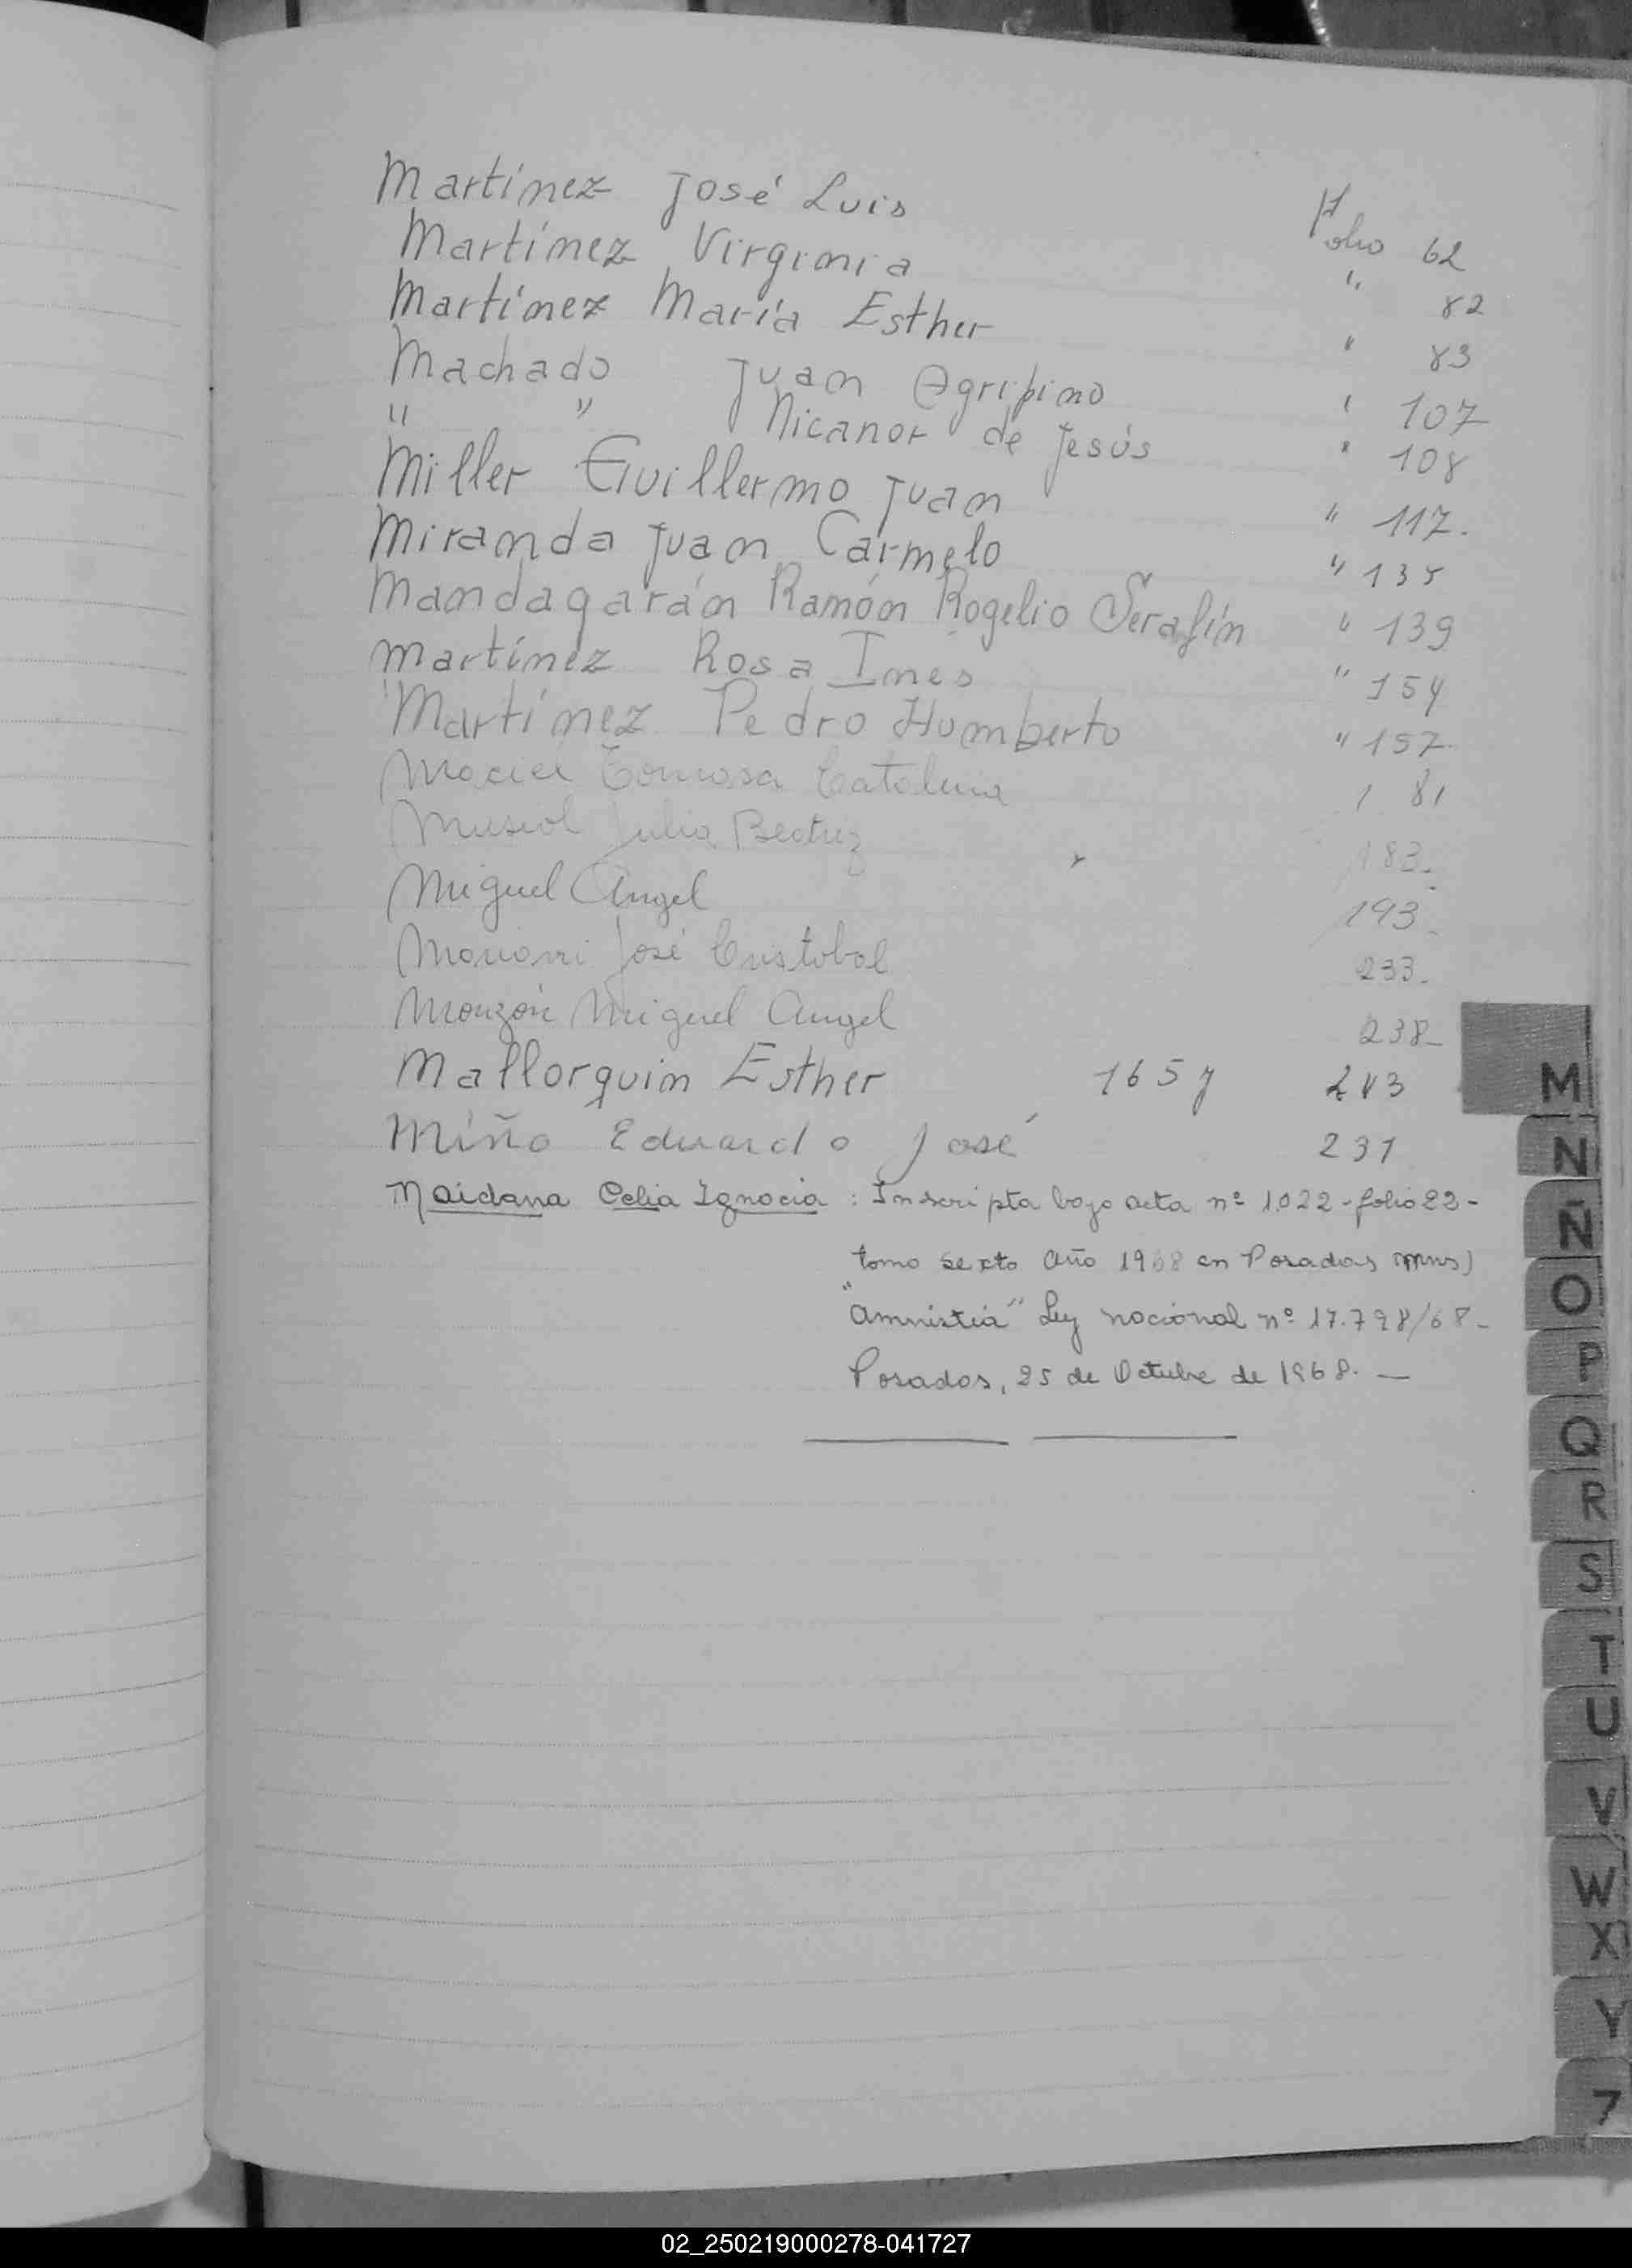 Martínez José Luis Folio 62
Martínez Virginia " 82
Martínez María Esther " 83
Machado Juan Agripino " 107
" " Nicanor de Jesús " 108
Miller Guillermo Juan " 117.
Miranda Juan Carmelo " 135
Mandagarán Ramón Rogelio Serafín " 139
Martínez Rosa Ines " 154
Martínez Pedro Humberto " 157
Maciel Tomasa Catalina 181
Musiol Julia Beatriz 183.
Miguel Angel 193
José Cristobal 233.
Monzón Miguel Angel 238-
Mallorquin Esther 165 243
Miño Eduardo José 231
Maidana Celia Ignacia : Inscripta bajo acta nº 1.022 - folio 23 -
tomo sexto año 1968 en Posadas (mns)
"amnistía" Ley nacional nº 17.798/68 -
Posadas, 25 de Octubre de 1968. —
M
N
Ñ
O
P
Q
R
S
T
U
V
W
X
Y
02_250219000278-041727